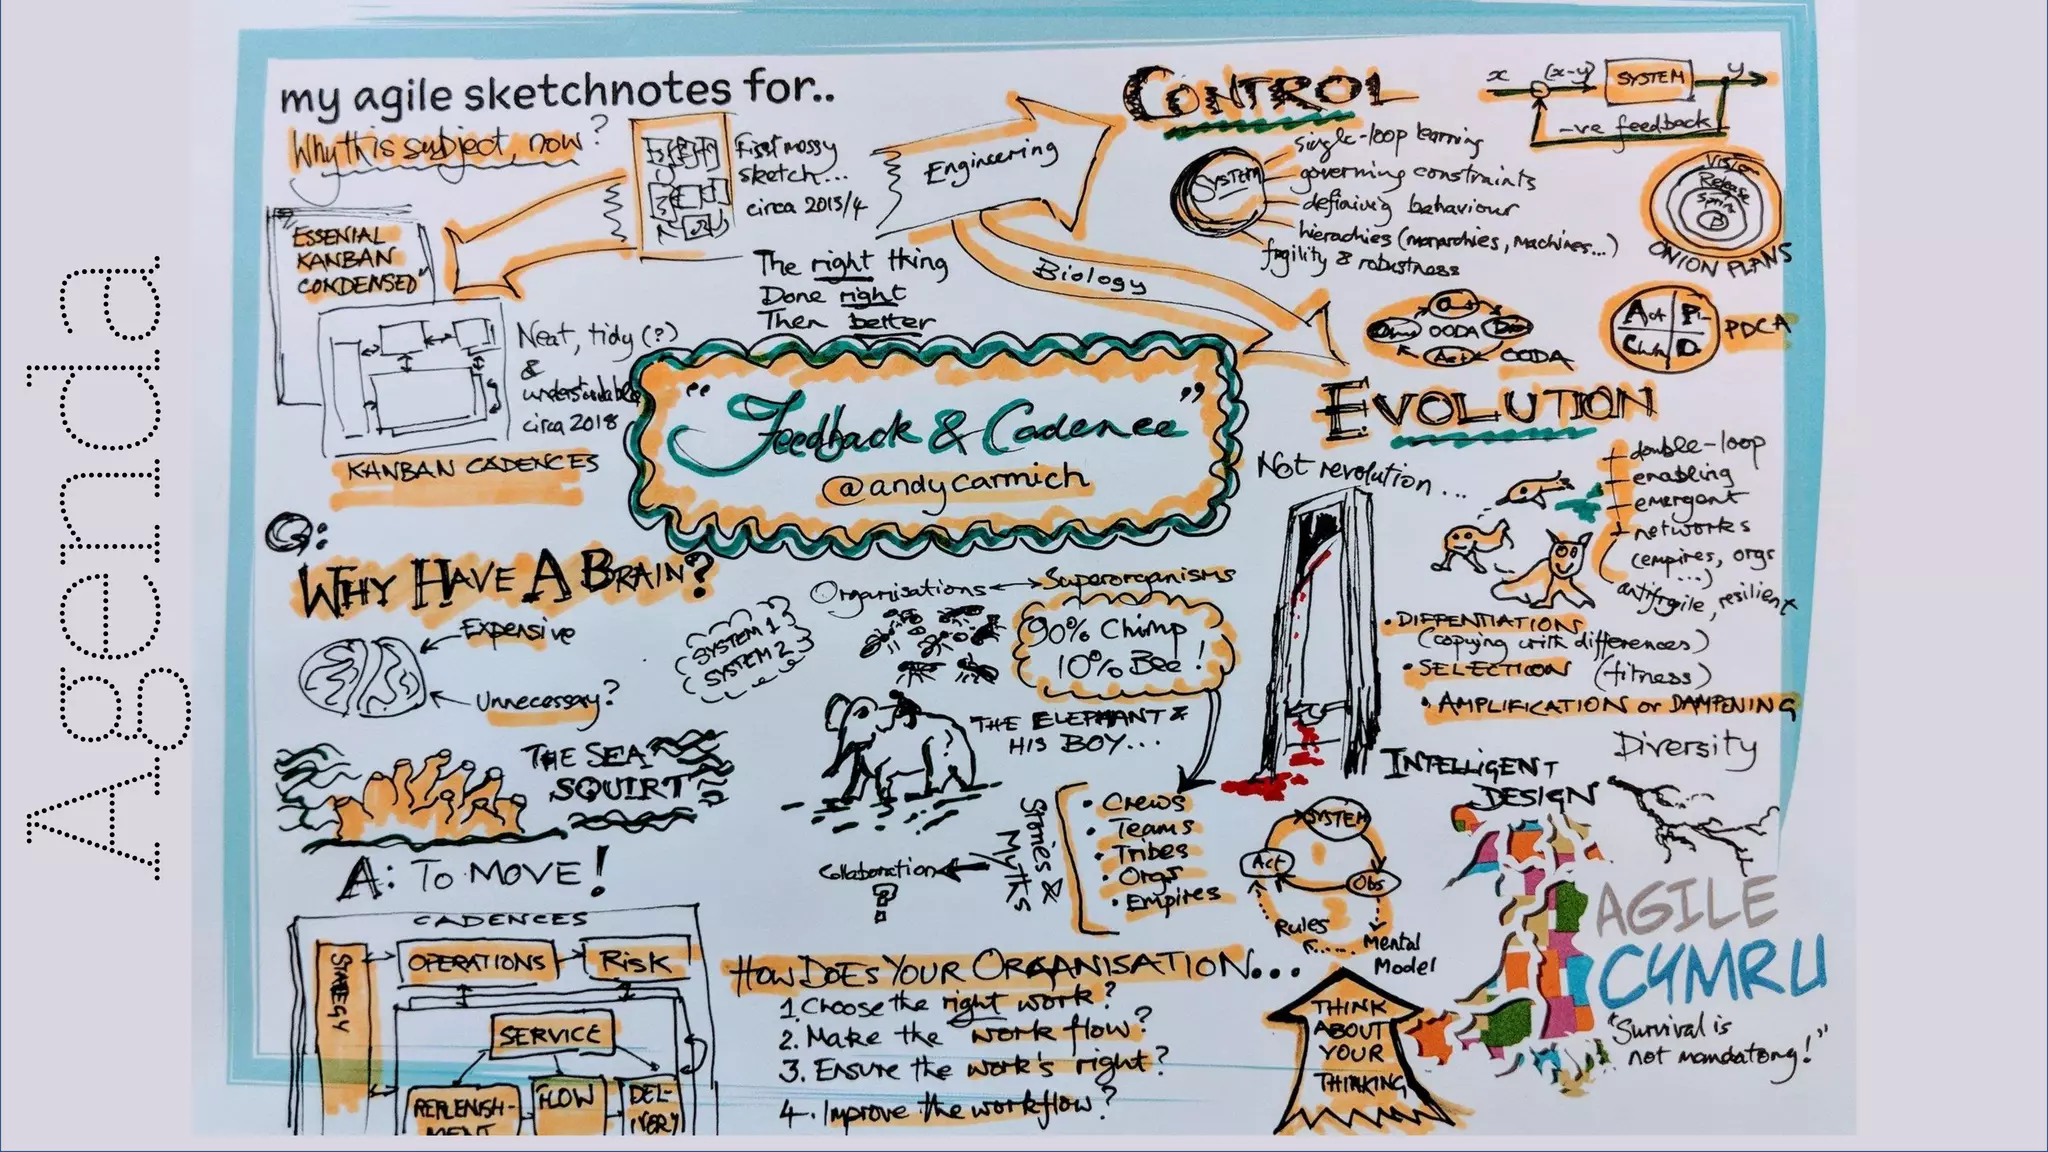 Agenda
my agile sketchnotes for..
Why this subject, now?
First messy
sketch...
circa 2013/4
ESSENIAL
KANBAN
CONDENSED"
Neat, tidy (?)
&
understandable
circa 2018
KANBAN CADENCES
Engineering
Biology
The right thing
Done right
Then better
"Feedback & Cadence"
@andycarmich
CONTROL
x
(x-y)
SYSTEM
y
-ve feedback
SYSTEM
single-loop learning
governing constraints
defining behaviour
hierachies (monarchies, machines...)
fragility & robustness
Vision
Release
Sprint
D
ONION PLANS
OODA
Act
OODA
Act
D
PDCA
EVOLUTION
Not revolution...
double-loop
enabling
emergent
networks
(empires, orgs
...)
antifragile, resilient
• DIFFENTIATION
(copying with differences)
• SELECTION (fitness)
• AMPLIFICATION or DAMPENING
Diversity
INTELLIGENT
DESIGN
Q:
WHY HAVE A BRAIN?
Expensive
Unnecessary?
SYSTEM 1
SYSTEM 2
THE SEA
SQUIRT
A: TO MOVE!
Organisations ↔ Superorganisms
90% Chimp
10% Bee!
THE ELEPHANT &
HIS BOY...
• Crews
• Teams
• Tribes
• Orgs
• Empires
Stories &
Myths
Collaboration
SYSTEM
Act
Obs
Rules
Mental
Model
CADENCES
STRATEGY
OPERATIONS
RISK
SERVICE
REPLENISH-
MENT
FLOW
DEL-
IVERY
HOW DOES YOUR ORGANISATION...
1. Choose the right work?
2. Make the work flow?
3. Ensure the work's right?
4. Improve the workflow?
THINK
ABOUT
YOUR
THINKING
AGILE
CYMRU
"Survival is
not mandatory!"